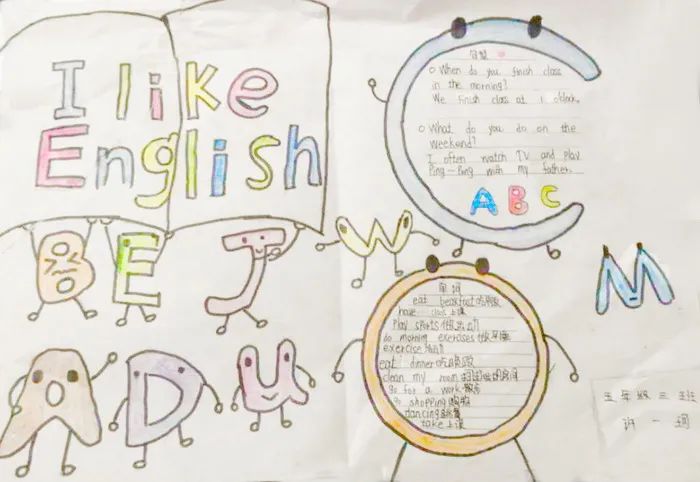 I like
English
句型
When do you finish class
in the morning?
We finish class at 1 o'clock.
What do you do on the
weekend?
I often watch TV and play
Ping-Pong with my father.
A B C
B E J W
M
A D U
单词
eat breakfast吃早饭
have class 上课
play sports
do morning exercises
exercise
eat dinner吃晚饭
clean my room
go for a walk
go shopping购物
dancing
take 上课
五年级三班
许一